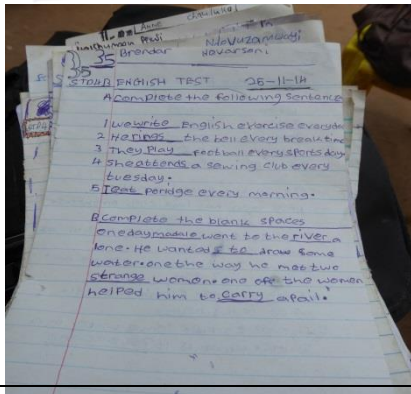 Anne
35 Brendar
Novarseni
35
STD4B ENGLISH TEST 25-11-14
A Complete the following Sentence
1 We write English exercise everyday
2 He rings the bell every break time
3 They Play football every sports day
4 She attends a sewing club every
tuesday.
5 I eat poridge every morning.
B Complete the blank spaces
one day madale went to the river a
lone. He wanted s to draw some
water. one the way he met two
strange women. one of the women
helped him to carry a pail.